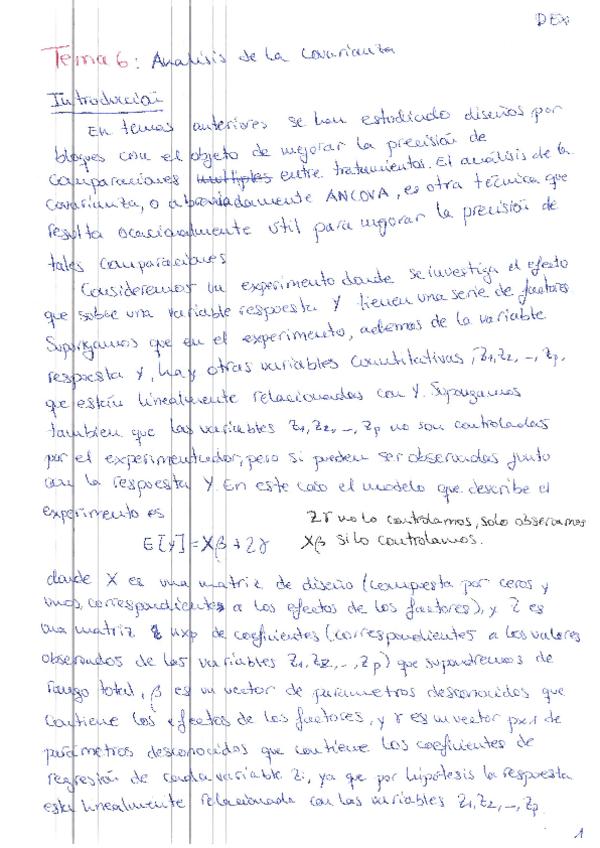 DEX
Tema 6: Analisis de la covarianza
Introducción
En temas anteriores se han estudiado diseños por
bloques con el objeto de mejorar la precisión de
comparaciones multiples entre tratamientos. El análisis de la
covarianza, o abreviadamente ANCOVA, es otra técnica que
resulta ocasionalmente útil para mejorar la precisión de
tales comparaciones
Consideremos un experimento donde se investiga el efecto
que sobre una variable respuesta Y tienen una serie de factores
Supongamos que en el experimento, ademas de la variable
respuesta Y, hay otras variables cuantitativas, Z1, Z2, -, Zp,
que están linealmente relacionadas con Y. Supongamos
tambien que las variables Z1, Z2, -, Zp no son controladas
por el experimentador, pero si pueden ser observadas junto
con la respuesta Y. En este caso el modelo que describe el
experimento es
Zγ no lo controlamos, solo observamos
E[Y] = Xβ + Zγ Xβ si lo controlamos.
donde X es una matriz de diseño (compuesta por ceros y
unos, correspondientes a los efectos de los factores), y Z es
una matriz nxp de coeficientes (correspondientes a los valores
observados de las variables Z1, Z2, -, Zp) que supondremos de
rango total, β es un vector de parametros desconocidos que
contiene los efectos de los factores, y γ es un vector px1 de
parámetros desconocidos que contiene los coeficientes de
regresión de cada variable Zi, ya que por hipótesis la respuesta
está linealmente relacionada con las variables Z1, Z2, -, Zp
1